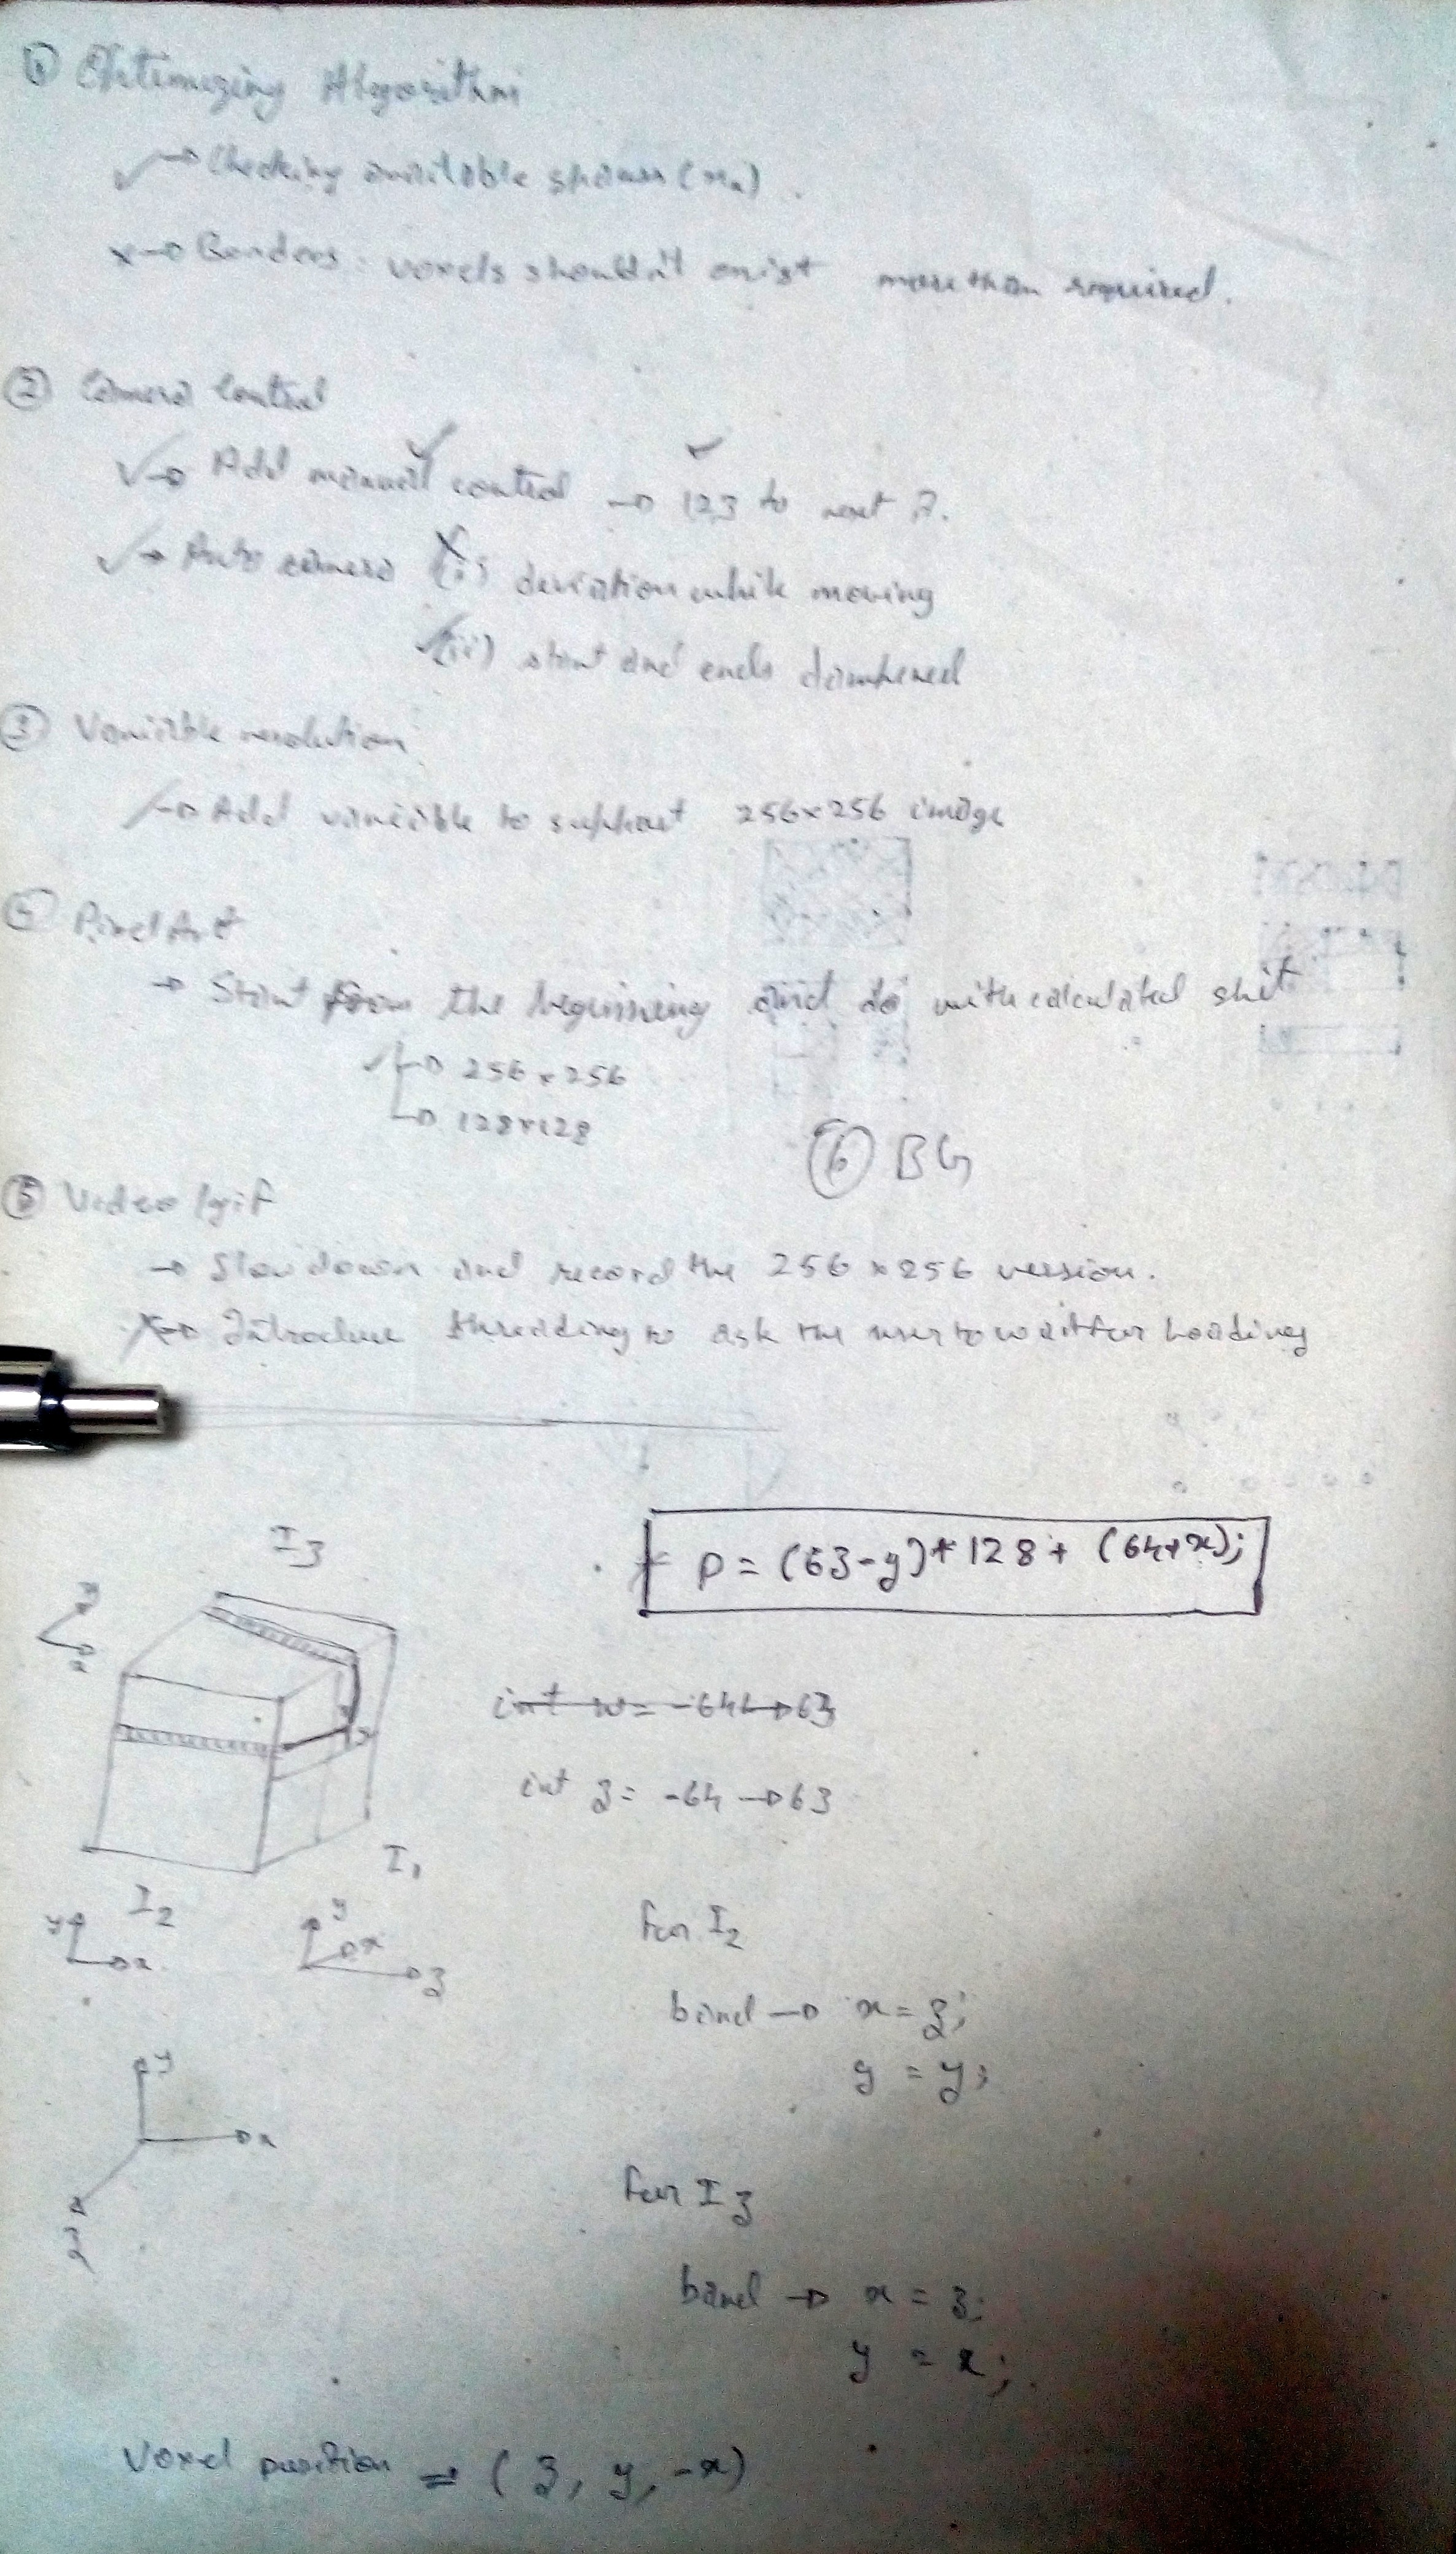 ① Optimizing Algorithm
✓→ Checking available spaces
x→ Borders: voxels shouldn't exist more than required.
② Camera control
✓→ Add manual control → 123 to reset
✓→ Auto camera (i) deviation while moving
(ii) start and ends dampened
③ Variable resolution
→ Add variable to support 256x256 image
④ Pixel Art
→ Start from the beginning and do with calculated shit
→ 256 x 256
→ 128x128
⑥ BG
⑤ Video/gif
→ Slow down and record the 256 x 256 version.
x→ Introduce threading to ask the user to wait for loading
I3
p = (63-y)*128 + (64+x);
y
z
int w = -64→63
int z = -64→63
x
I1
I2
y
x
y
x
z
for I2
band → x = z;
y = y;
y
x
z
for I3
band → x = z;
y = x;
voxel position = (z, y, -x)